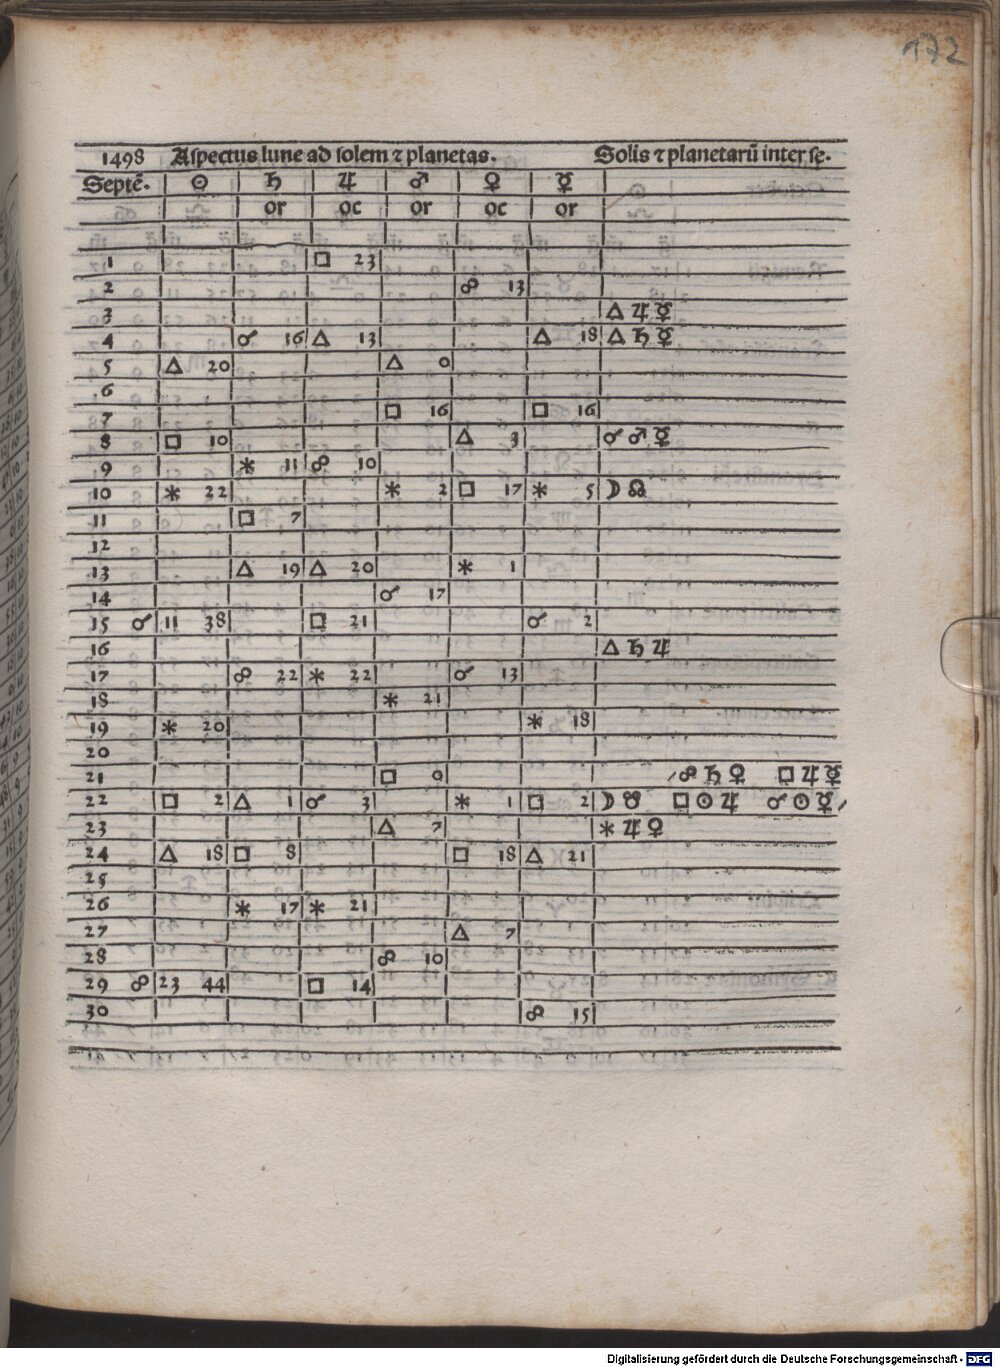 172
1498 Aſpectus lune ad ſolem ⁊ planetas. Solis ⁊ planetarū inter ſe.
Septē. ☉ ♄ ♃ ♂ ♀ ☿
or oc or oc or
1 □ 23
2 ☍ 13
3 △ ♃ ☿
4 ☌ 16 △ 13 △ 18 △ ♄ ☿
5 △ 20 △ 0
6
7 □ 16 □ 16
8 □ 10 △ 3 ☌ ♂ ☿
9 ⚹ 11 ☍ 10
10 ⚹ 22 ⚹ 2 □ 17 ⚹ 5 ☽ ☊
11 □ 7
12
13 △ 19 △ 20 ⚹ 1
14 ☌ 17
15 ☌ 11 38 □ 21 ☌ 2
16 △ ♄ ♃
17 ☍ 22 ⚹ 22 ☌ 13
18 ⚹ 21
19 ⚹ 20 ⚹ 18
20
21 □ 0 ☍ ♄ ♀ □ ♃ ☿
22 □ 2 △ 1 ☌ 3 ⚹ 1 □ 2 ☽ ☋ □ ☉ ♃ ☌ ☉ ☿
23 △ 7 ⚹ ♃ ♀
24 △ 18 □ 8 □ 18 △ 21
25
26 ⚹ 17 ⚹ 21
27 △ 7
28 ☍ 10
29 ☍ 23 44 □ 14
30 ☍ 15
Digitalisierung gefördert durch die Deutsche Forschungsgemeinschaft - DFG